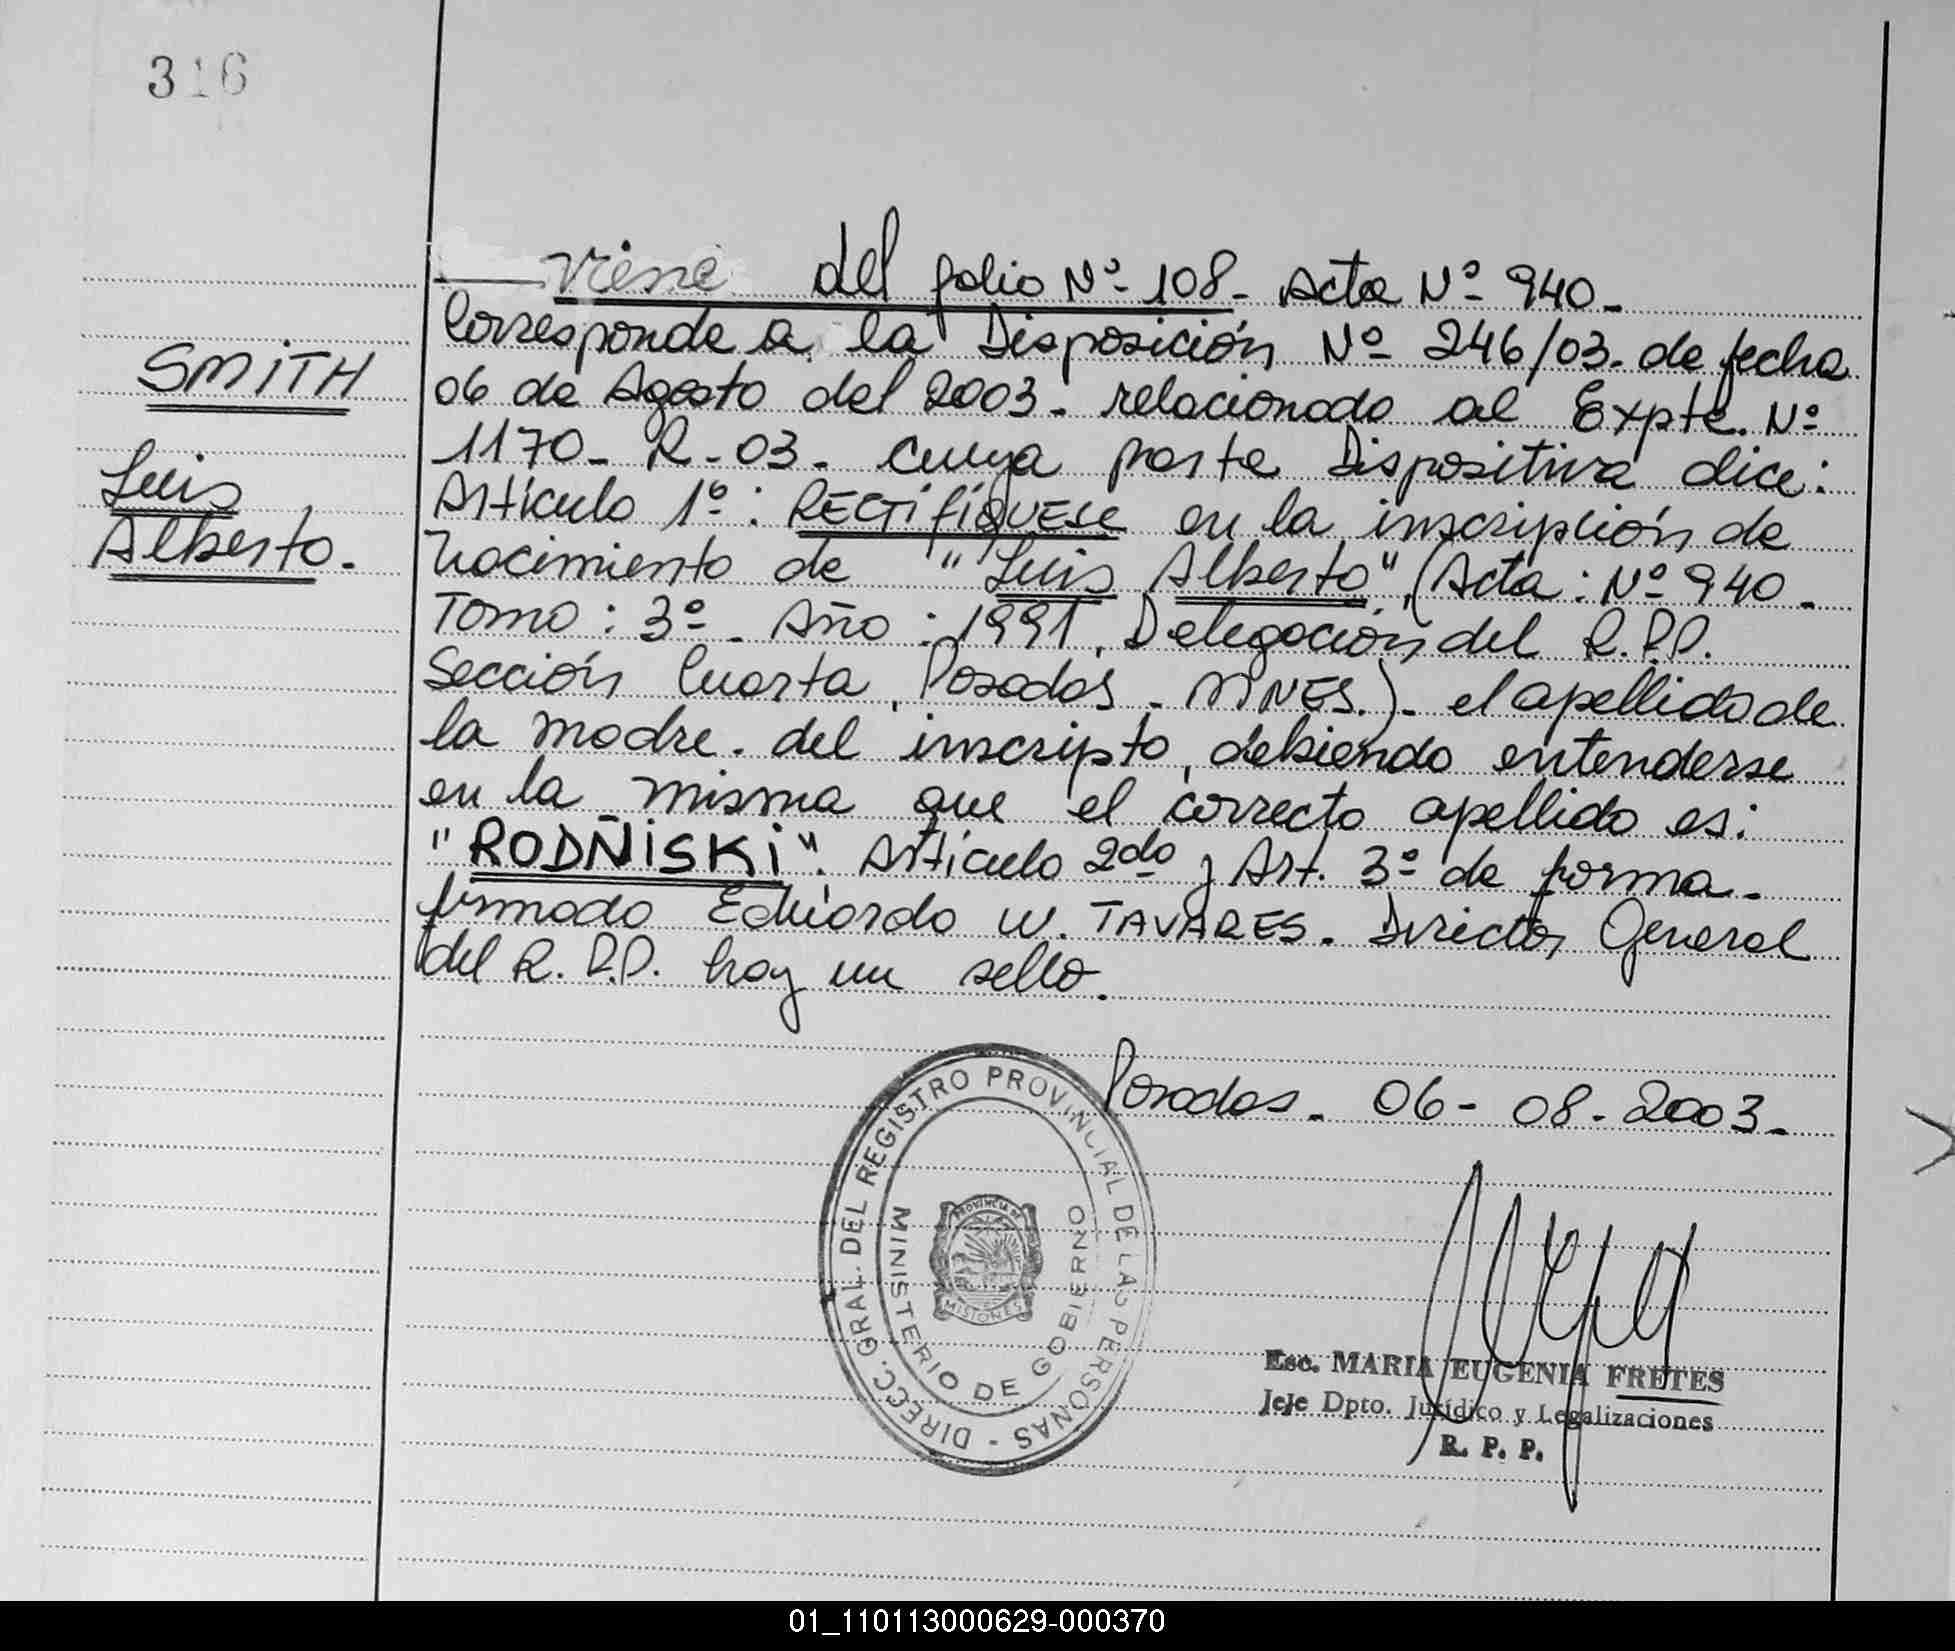 316
SMITH
Luis
Alberto.
Viene del folio Nº 108- Acta Nº 940-
Corresponde a la Disposición Nº 246/03. de fecha
06 de Agosto del 2003- relacionado al Expte. Nº
1170- R-03- cuya parte Dispositiva dice:
Artículo 1º: RECTIFÍQUESE en la inscripción de
Nacimiento de "Luis Alberto", (Acta: Nº 940-
Tomo: 3º- Año: 1991, Delegación del R.P.P.
Sección Cuarta, Posadas- MNES.)- el apellido de
la madre. del inscripto, debiendo entenderse
en la misma que el correcto apellido es:
"RODÑISKI". Artículo 2do y Art. 3º de forma-
firmado Eduardo W. TAVARES. Director General
del R.P.P. hay un sello.
Posadas- 06-08-2003-
DIRECC. GRAL. DEL REGISTRO PROVINCIAL DE LAS PERSONAS -
MINISTERIO DE GOBIERNO
PROVINCIA DE
MISIONES
Esc. MARIA EUGENIA FRETES
Jefe Dpto. Jurídico y Legalizaciones
R. P. P.
01_110113000629-000370